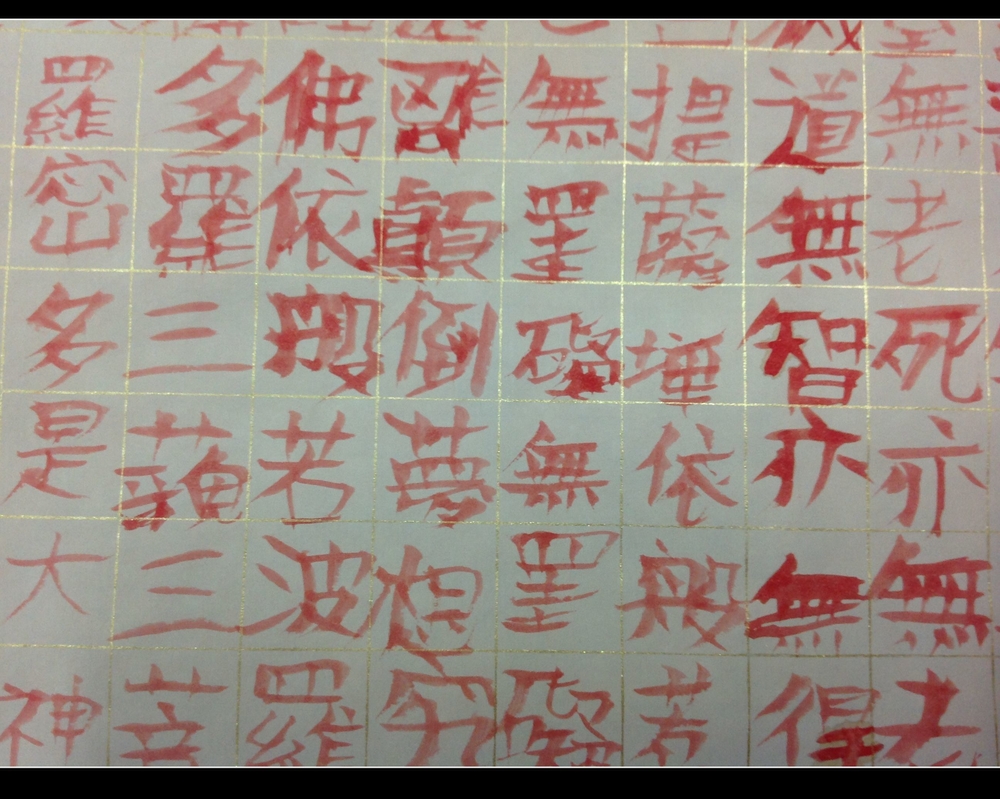 無老死亦無老
道無智亦無得
提薩埵依般若
無罣礙無罣礙
離顛倒夢想究
佛依般若波羅
多羅三藐三菩
羅密多是大神